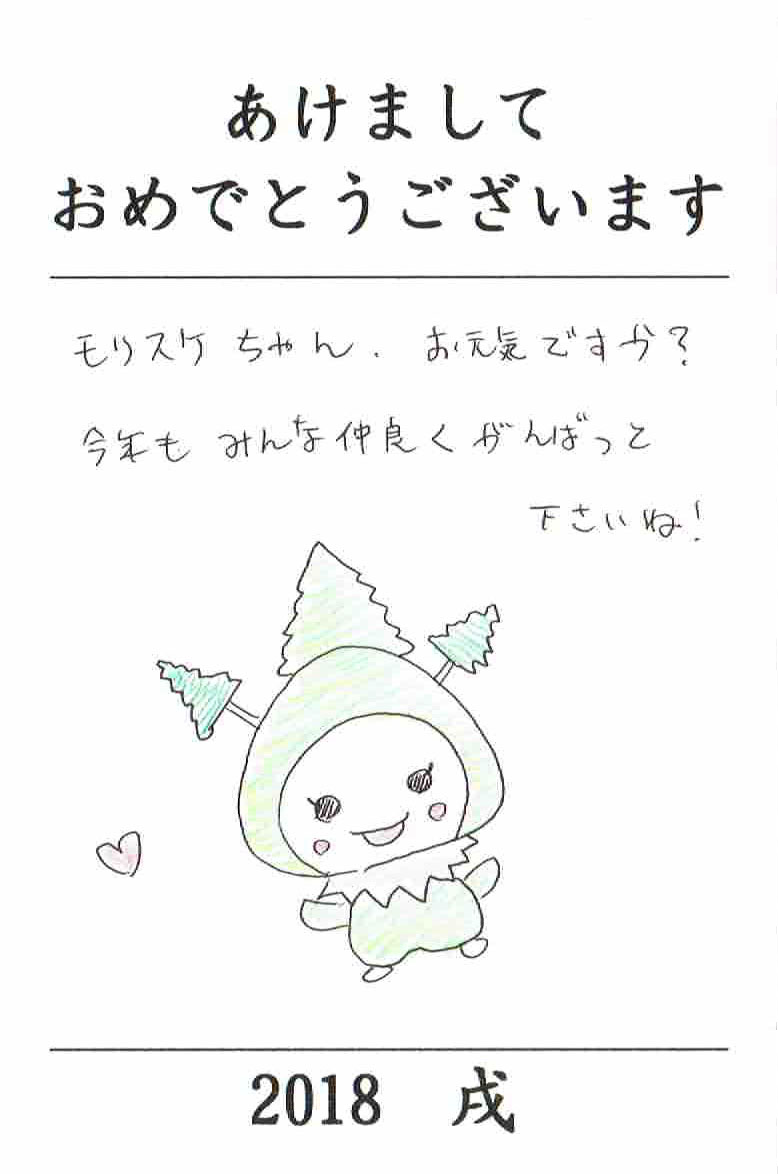 あけまして
おめでとうございます
モリスケちゃん. お元気ですか?
今年も みんな仲良くがんばっと
下さいね!
2018 戌